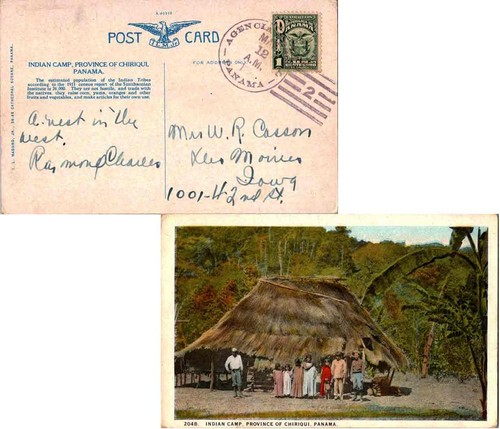 POST CARD
INDIAN CAMP, PROVINCE OF CHIRIQUI,
PANAMA.
The estimated population of the Indian Tribes
according to the 1911 census report of the Smithsonian
Institute is 36,000. They are not hostile, and trade with
the natives, they raise corn, yams, oranges and other
fruits and vegetables, and make articles for their own use.
A nest in the
west.
Raymond Charles
FOR ADDRESS ONLY
AGENCIA
PANAMA
A.M.
2
PANAMA
1
Mrs W. R. Casson
Des Moines
Iowa
1001-42nd St.
2048. INDIAN CAMP, PROVINCE OF CHIRIQUI, PANAMA.